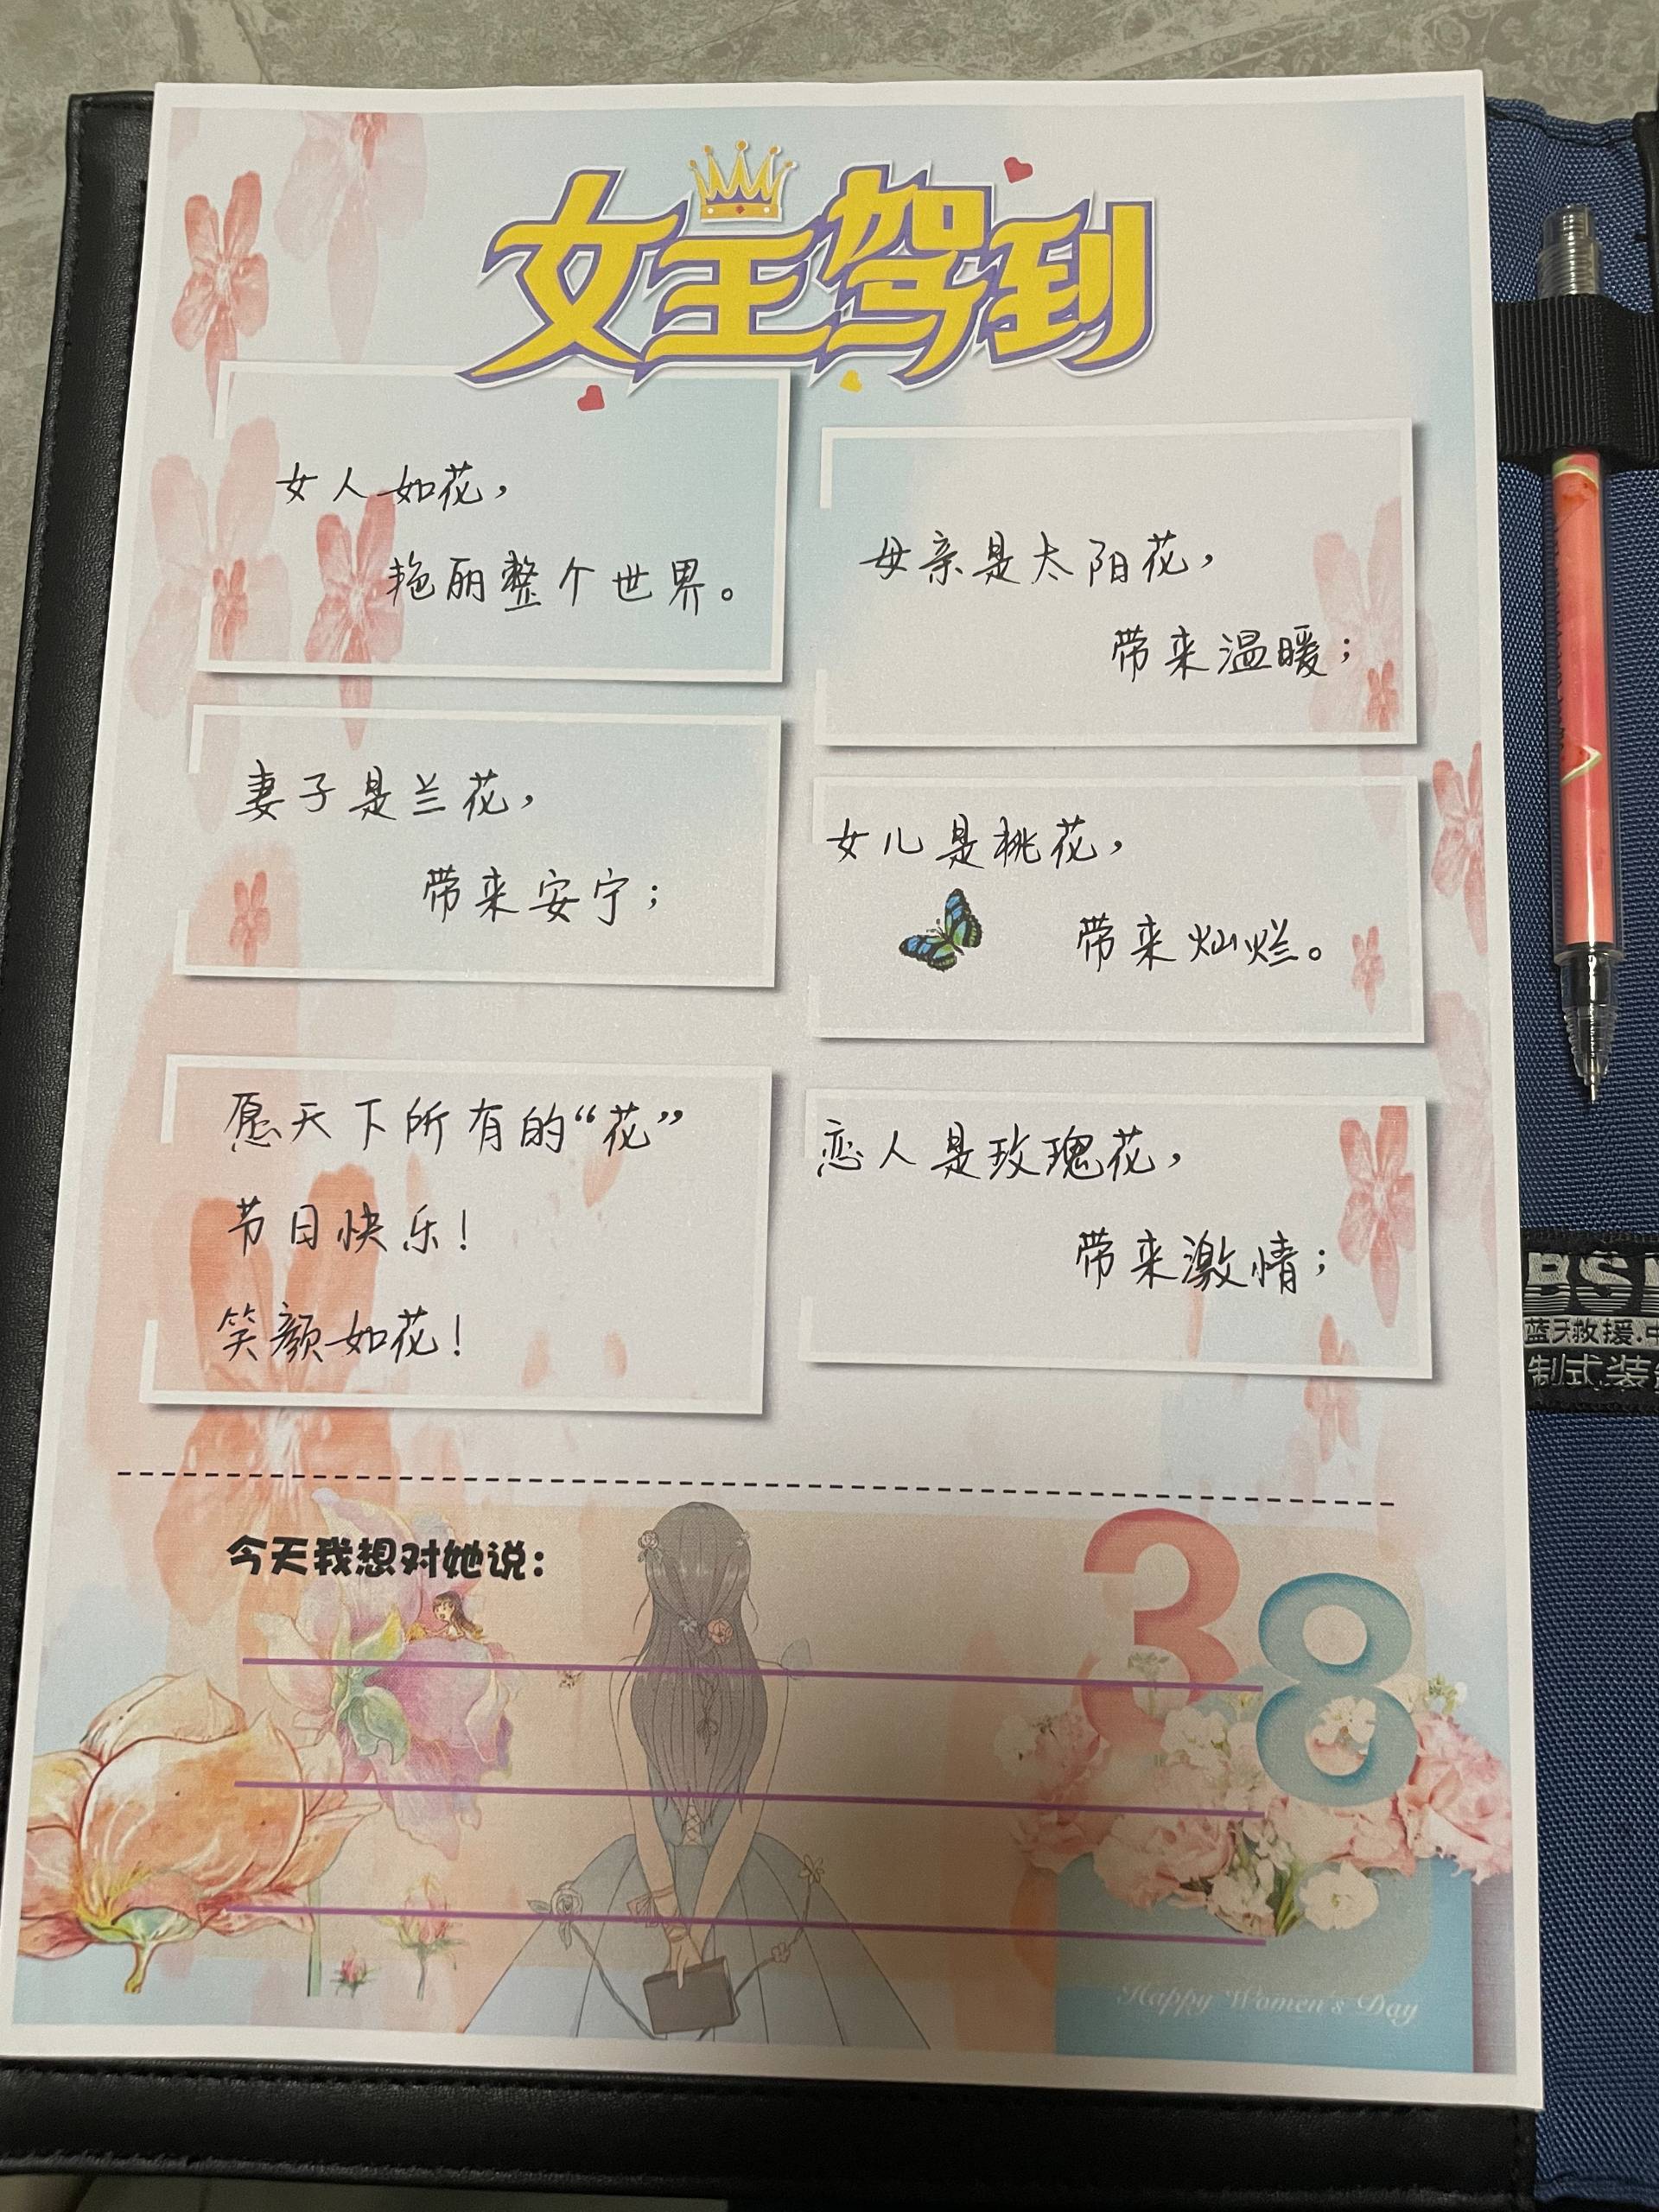 女王驾到
女人如花，
艳丽整个世界。
母亲是太阳花，
带来温暖；
妻子是兰花，
带来安宁；
女儿是桃花，
带来灿烂。
愿天下所有的“花”
节日快乐！
笑颜如花！
恋人是玫瑰花，
带来激情；
今天我想对她说：
38
Happy Women's Day
蓝天救援.
制式装